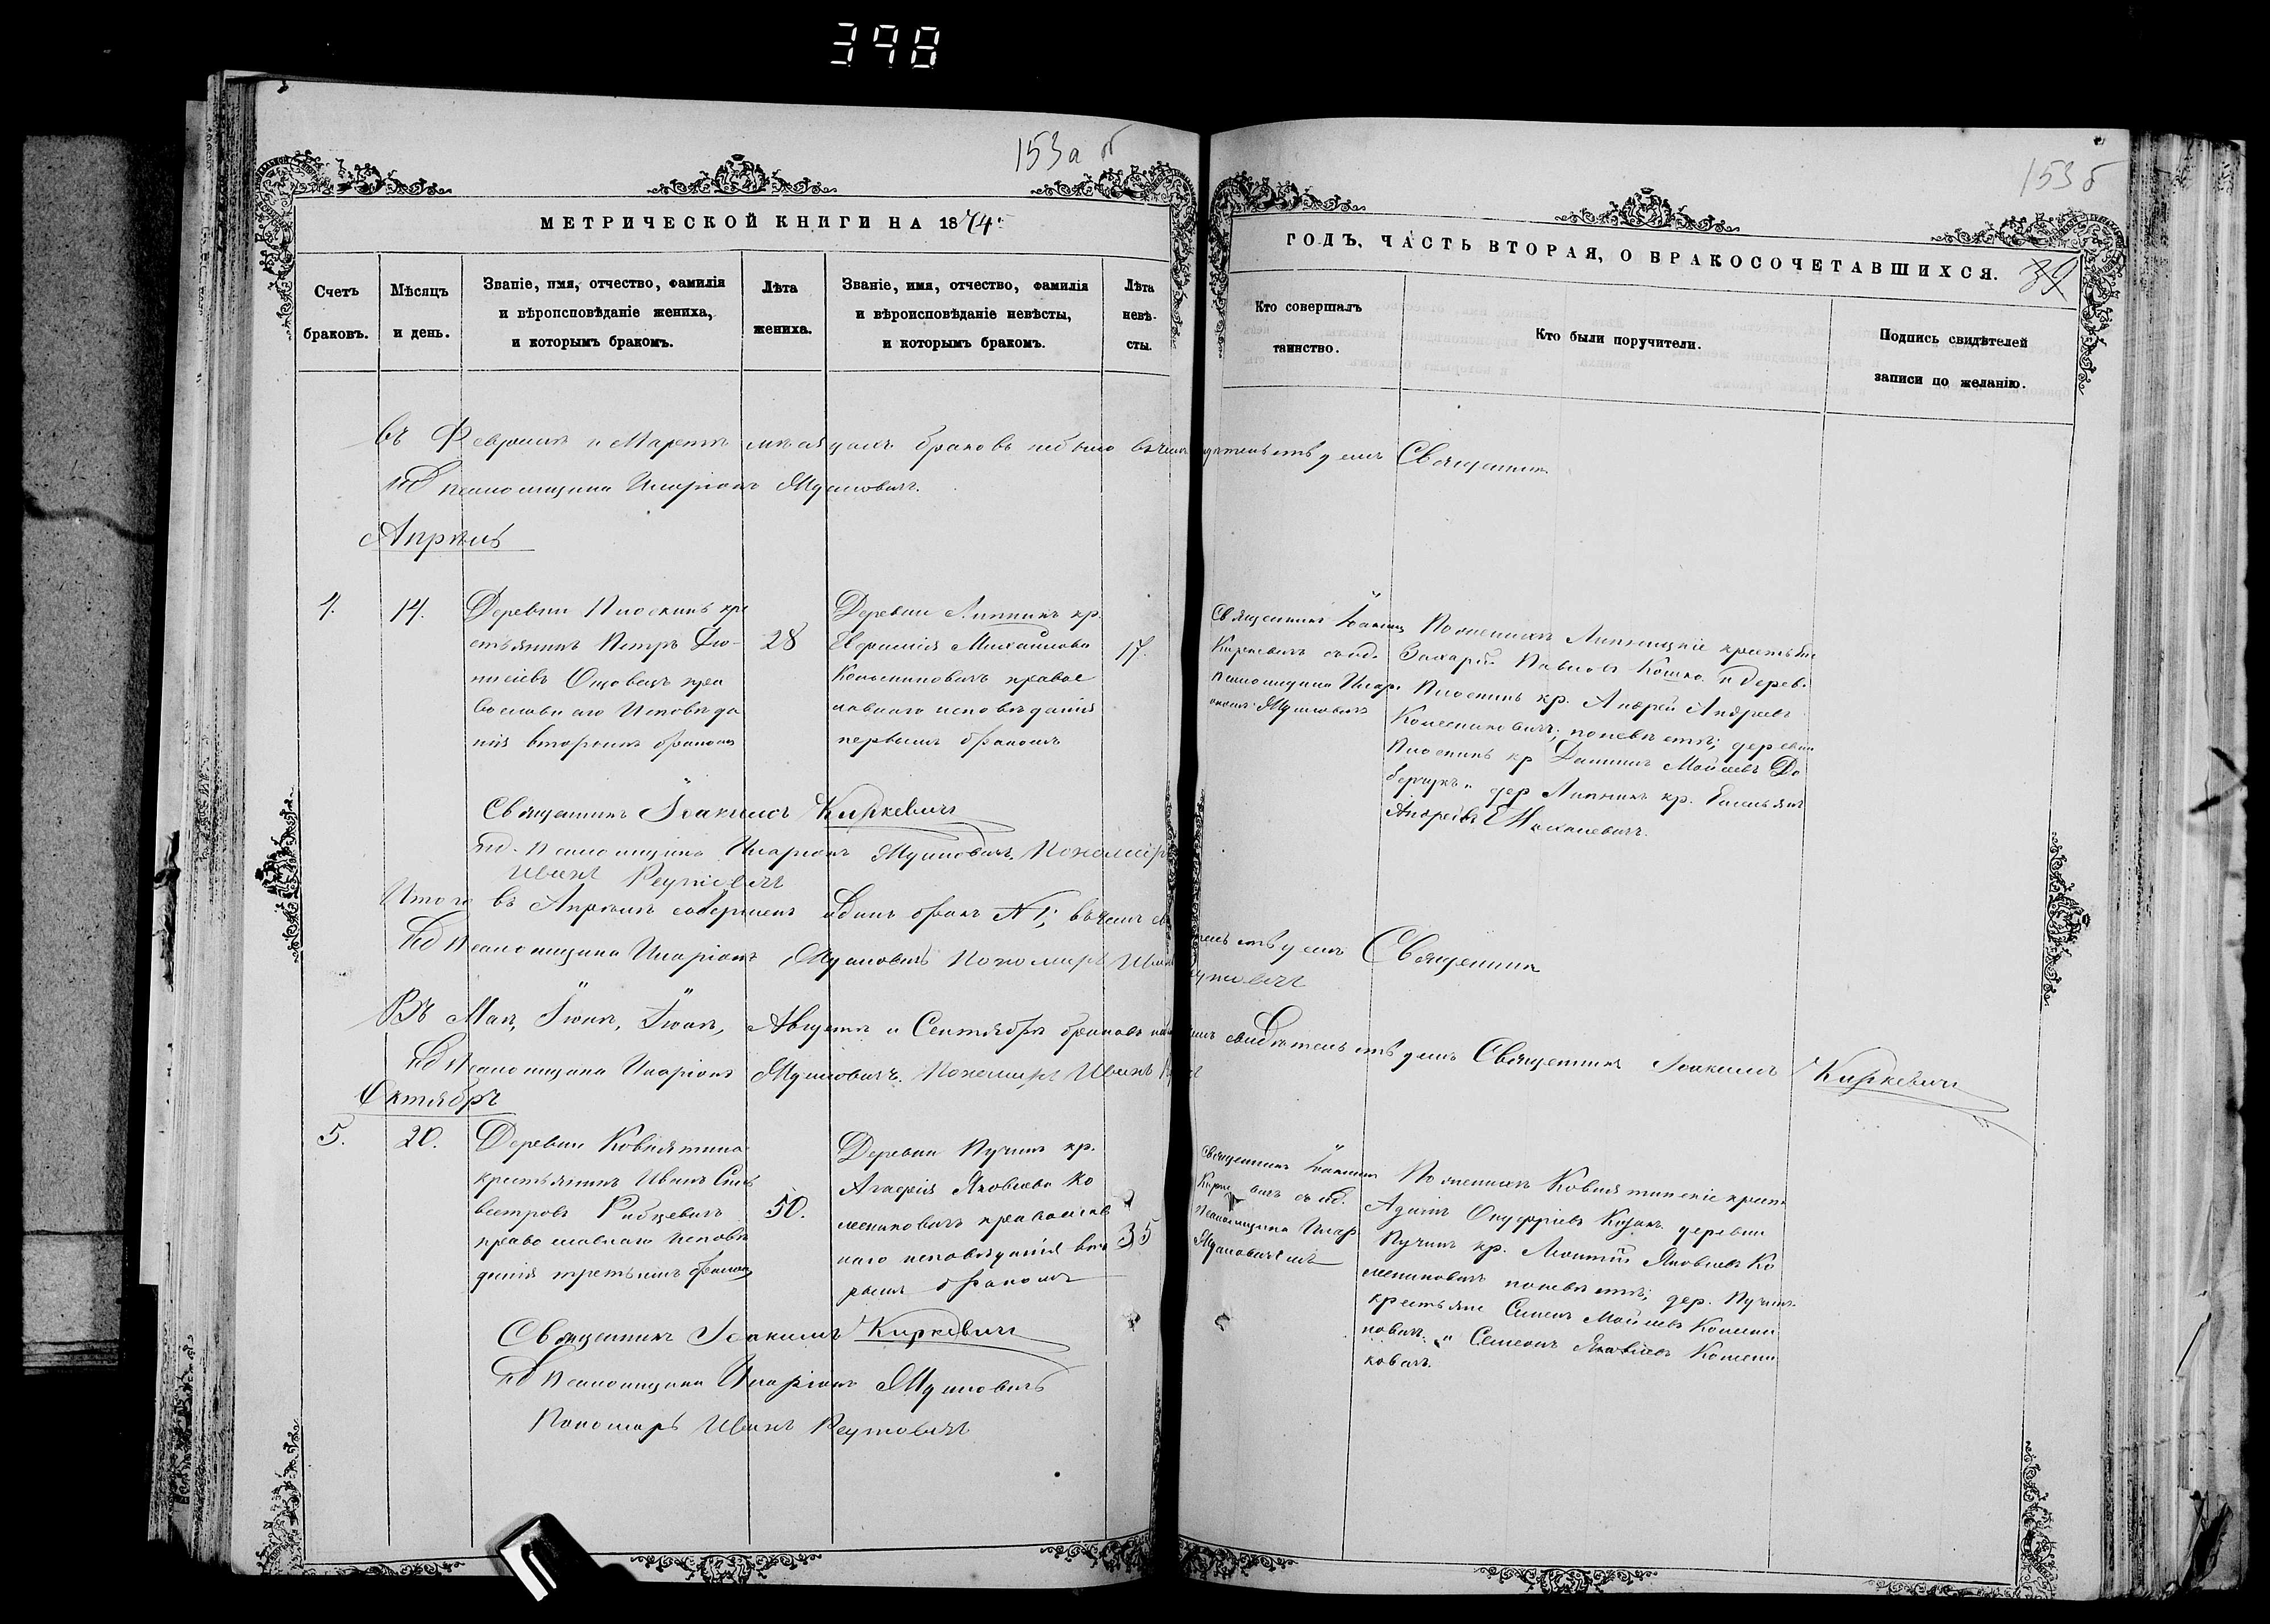 398
153а об
153 б
МЕТРИЧЕСКОЙ КНИГИ НА 1874
ГОДЪ, ЧАСТЬ ВТОРАЯ, О БРАКОСОЧЕТАВШИХСЯ.
39
Счетъ браковъ.
Мѣсяцъ и день.
Званіе, имя, отчество, фамилія
и вѣроисповѣданіе жениха,
и которымъ бракомъ.
Лѣта
жениха.
Званіе, имя, отчество, фамилія
и вѣроисповѣданіе невѣсты,
и которымъ бракомъ.
Лѣта
невѣ-
сты.
Кто совершалъ
таинство.
Кто были поручители.
Подпись свидѣтелей
записи по желанію.
Въ Февралѣ и Мартѣ мѣсяцахъ браковъ небыло въчемъ свидѣтельствуемъ Священникъ
Псаломщика Иларіонъ
Апрѣль
4. 14.
Деревни Плоскинь кре
стьянинъ Петръ Дио-
нисіевъ пра
вославнаго Исповѣда
нія вторымъ бракомъ
28
Деревни Липникъ кр.
Евфимія Михайлова
Колесниковичъ правос
лавнаго исповѣданія
первымъ бракомъ
17.
Священникъ Іоакимъ
Киркевичъ съ ид.
псаломщика Илар.
По женихѣ Липницкіе крестьяне
Захарій Павловъ Кошко и дерев.
Плоскинь кр. Андрей Андреевъ
Колесниковичъ; поневѣстѣ; деревни
Плоскинь кр Даніилъ Мойсеевъ До
дер Липникъ кр. Емельянъ
Андреевъ
Священникъ Іоакимъ Киркевичъ
ид. Псаломщика Иларіонъ Пономарь
Иванъ Реутовичъ
Итого въ Апрѣлѣ совершенъ одинъ бракъ N 1; въчемъ свидѣтельствуемъ Священникъ
ид Псаломщика Иларіонъ Пономарь Иванъ Реутовичъ
Въ Маѣ, Іюнѣ, Іюлѣ, Августѣ и Сентябрѣ браковъ свидѣтельствуемъ Священникъ Іоакимъ Киркевичъ
ид Псаломщика Иларіонъ Пономарь Иванъ
Октябрь
5. 20.
Деревни Ковнятина
крестьянинъ Иванъ Силь
вестровъ Рибцевичъ
православнаго Исповѣ
данія третьимъ бракомъ
50.
Деревни Пучинъ кр.
Агафія Яковлева Ко
лесниковичъ православ
наго исповѣданія вто
рымъ бракомъ
35
Священникъ Іоакимъ
Киркевичъ съ ид.
псаломщика Илар
По женихѣ Ковнятинскіе крест
Адамъ Онуфріевъ Козакъ деревни
Пучинъ кр. Леонтій Яковлевъ Ко
лесниковичъ поневѣстѣ; дер. Пучинъ
крестьяне Семенъ Мойсеевъ Колесни
ковичъ и Семеонъ Яковлевъ Колесни
ковичъ.
Священникъ Іоакимъ Киркевичъ
ид Псаломщика Иларіонъ
Пономарь Иванъ Реутовичъ